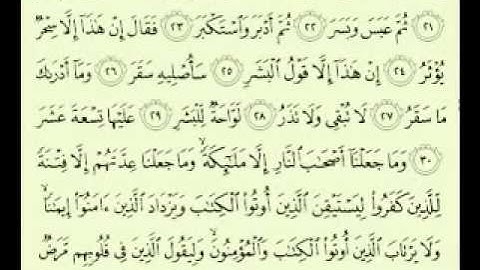 ٢١ ثُمَّ عَبَسَ وَبَسَرَ ٢٢ ثُمَّ أَدْبَرَ وَٱسْتَكْبَرَ ٢٣ فَقَالَ إِنْ هَٰذَآ إِلَّا سِحْرٌ
يُؤْثَرُ ٢٤ إِنْ هَٰذَآ إِلَّا قَوْلُ ٱلْبَشَرِ ٢٥ سَأُصْلِيهِ سَقَرَ ٢٦ وَمَآ أَدْرَىٰكَ
مَا سَقَرُ ٢٧ لَا تُبْقِى وَلَا تَذَرُ ٢٨ لَوَّاحَةٌ لِّلْبَشَرِ ٢٩ عَلَيْهَا تِسْعَةَ عَشَرَ
٣٠ وَمَا جَعَلْنَآ أَصْحَٰبَ ٱلنَّارِ إِلَّا مَلَٰٓئِكَةً ۙ وَمَا جَعَلْنَا عِدَّتَهُمْ إِلَّا فِتْنَةً
لِّلَّذِينَ كَفَرُوا۟ لِيَسْتَيْقِنَ ٱلَّذِينَ أُوتُوا۟ ٱلْكِتَٰبَ وَيَزْدَادَ ٱلَّذِينَ ءَامَنُوٓا۟ إِيمَٰنًا ۙ
وَلَا يَرْتَابَ ٱلَّذِينَ أُوتُوا۟ ٱلْكِتَٰبَ وَٱلْمُؤْمِنُونَ ۙ وَلِيَقُولَ ٱلَّذِينَ فِى قُلُوبِهِم مَّرَضٌ